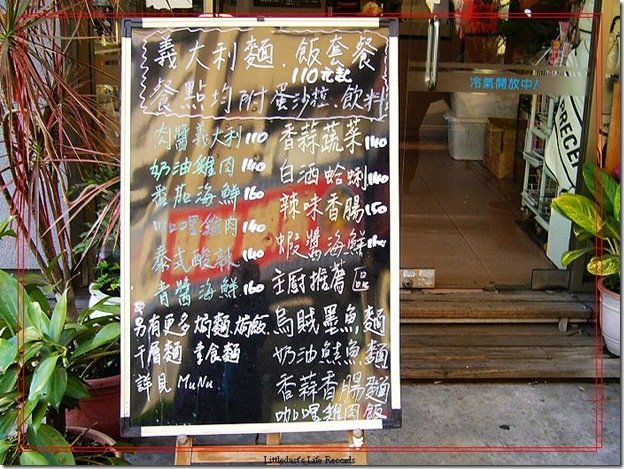 義大利麵、飯套餐
110元起
餐點均附蛋沙拉、飲料
肉醬義大利 110
奶油雞肉 140
茄海鮮 160
咖哩雞肉 140
泰式酸辣 140
青醬海鮮 160
香蒜蔬菜 140
白酒蛤蜊 140
辣味香腸 150
蝦醬海鮮
主厨推薦區
烏賊墨魚麵
奶油鮭魚麵
香蒜香腸麵
咖哩雞肉飯
另有更多焗麵.焗飯
千層麵 素食麵
詳見 MuNu
冷氣開放中!
PRECE
Littledust's Life Records